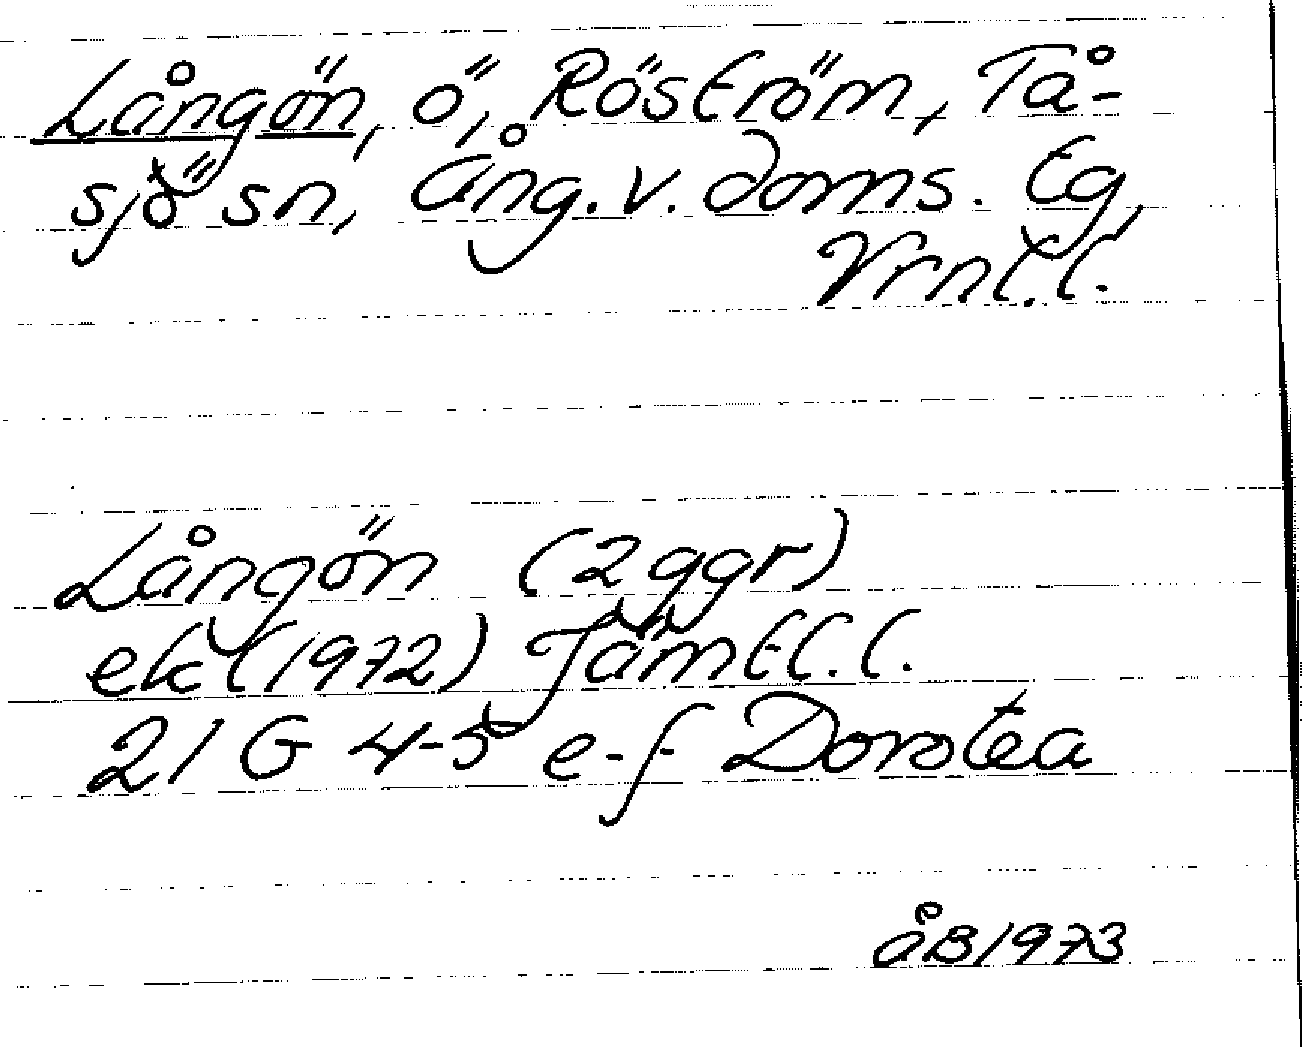 Långön, ö, Röström, Tå-
sjö sn, Ång. v. doms. Eg,
Vrnl.l.
Långön (2 ggr)
ek (1972) Jämtl.l.
21 G 4-5 e-f Dorotea
åB 1973